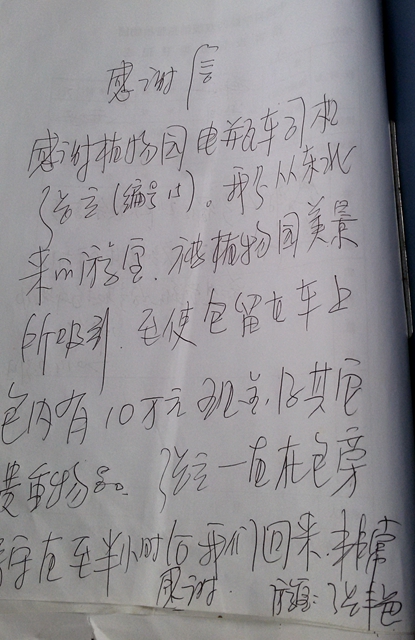 感谢信
感谢植物园电瓶车司机
张立(编号15)。我们从东北
来的游客.被植物园美景
所吸引.至使包留在车上
包内有10万元现金,及其它
贵重物品。张立一直在包旁
守在至半小时后我们回来.非常
感谢.
游客:张丰色